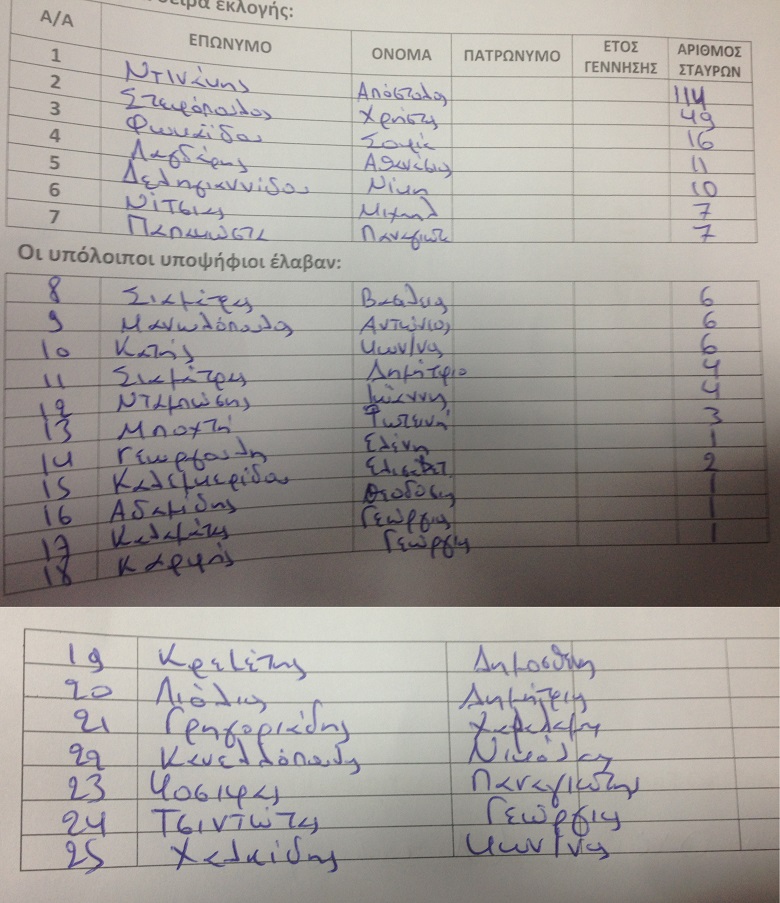 εκλογής:
Α/Α ΕΠΩΝΥΜΟ ΟΝΟΜΑ ΠΑΤΡΩΝΥΜΟ ΕΤΟΣ ΓΕΝΝΗΣΗΣ ΑΡΙΘΜΟΣ ΣΤΑΥΡΩΝ
1 Ντινάκης Απόστολος 114
2 Στειρόπουλος Χρήστος 49
3 Φωκαΐδου Σοφία 16
4 Λαζδάρης Αθανάσιος 11
5 Δεληγιαννίδου Νίκη 10
6 Νίτσιας Μιχαήλ 7
7 Παπακώστα Παναγιώτα 7
Οι υπόλοιποι υποψήφιοι έλαβαν:
8 Σιαμέτρης Βασίλειος 6
9 Μανωλόπουλος Αντώνιος 6
10 Κατής Κων/νος 6
11 Σιαμάτρας Δημήτριο 4
12 Νταμπώσης Ιωάννης 4
13 Μποχτή Φωτεινή 3
14 Γεωργούλη Ελένη 1
15 Καλεμκερίδου Ελισάβετ 2
16 Αδαμίδης Θεοδόσης 1
17 Καλαμάτας Γεώργιος 1
18 Καρμής Γεώργιος 1
19 Κρεμέτης Δημοσθένης
20 Λιόλιος Δημήτριος
21 Γρηγοριάδης Χαράλαμπος
22 Κανελλόπουλος Νικόλαος
23 Κοσιφας Παναγιώτης
24 Τσιντώτας Γεώργιος
25 Χαλκίδης Κων/νος